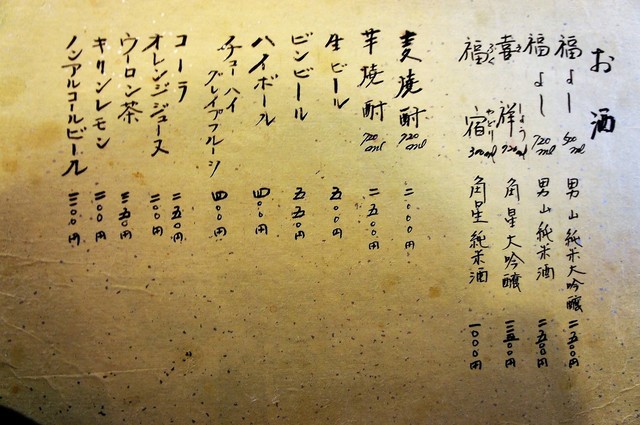 お酒
福よし 男山純米大吟醸 二五〇〇円
福よし 720ml 男山純米酒 二五〇〇円
喜祥 720ml 角星大吟醸
福宿 300ml 角星純米酒 一〇〇〇円
麦焼酎 720ml 二〇〇〇円
芋焼酎 720ml 二五〇〇円
生ビール 五〇〇円
ビンビール 五五〇円
ハイボール 四〇〇円
チューハイ グレイプフルーツ 四〇〇円
コーラ 二五〇円
オレンジジュース 二〇〇円
ウーロン茶 二五〇円
キリンレモン 二〇〇円
ノンアルコールビール 三〇〇円